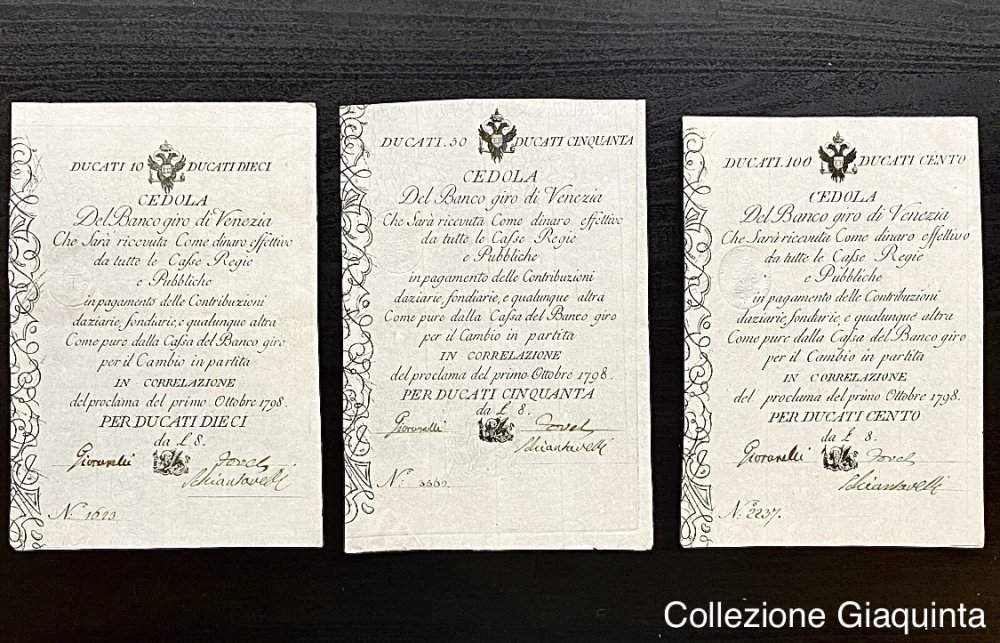 DUCATI 10 DUCATI DIECI
CEDOLA
Del Banco giro di Venezia
Che Sarà ricevuta Come dinaro effettivo
da tutte le Casse Regie
e Pubbliche
in pagamento delle Contribuzioni
daziarie, fondiarie, e qualunque altra
Come pure dalla Cassa del Banco giro
per il Cambio in partita
IN CORRELAZIONE
del proclama del primo Ottobre 1798.
PER DUCATI DIECI
da £ 8.
Giovanelli
N.° 1623
DUCATI.50 DUCATI CINQUANTA
CEDOLA
Del Banco giro di Venezia
Che Sarà ricevuta Come dinaro effettivo
da tutte le Casse Regie
e Pubbliche
in pagamento delle Contribuzioni
daziarie, fondiarie, e qualunque altra
Come pure dalla Cassa del Banco giro
per il Cambio in partita
IN CORRELAZIONE
del proclama del primo Ottobre 1798.
PER DUCATI CINQUANTA
da £ 8.
Giovanelli
N.°
DUCATI.100 DUCATI CENTO
CEDOLA
Del Banco giro di Venezia
Che Sarà ricevuta Come dinaro effettivo
da tutte le Casse Regie
e Pubbliche
in pagamento delle Contribuzioni
daziarie, fondiarie, e qualunque altra
Come pure dalla Cassa del Banco giro
per il Cambio in partita
IN CORRELAZIONE
del proclama del primo Ottobre 1798.
PER DUCATI CENTO
da £ 8.
Giovanelli
N.° 2237.
Collezione Giaquinta